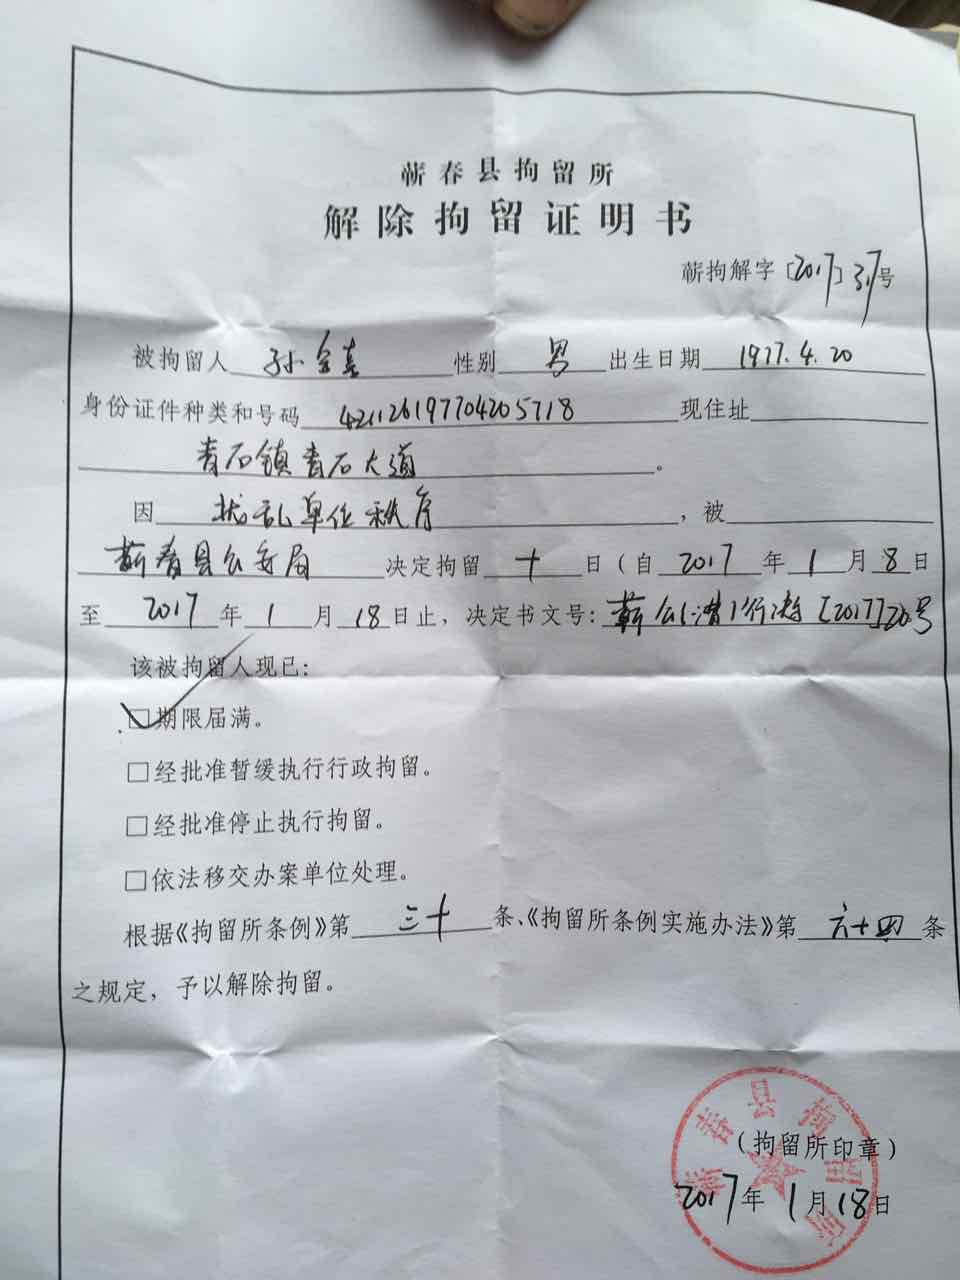 蕲春县拘留所
解除拘留证明书
蕲拘解字〔2017〕37号
被拘留人 孙全喜 性别 男 出生日期 1977.4.20
身份证件种类和号码 421126197704205718 现住址
青石镇青石大道。
因 扰乱单位秩序,被
蕲春县公安局 决定拘留 十 日(自 2017 年 1 月 8 日
至 2017 年 1 月 18 日止,决定书文号: 蕲公(漕)行决[2017]20号
该被拘留人现已:
☑期限届满。
□经批准暂缓执行行政拘留。
□经批准停止执行拘留。
□依法移交办案单位处理。
根据《拘留所条例》第 三十 条、《拘留所条例实施办法》第 六十四 条
之规定,予以解除拘留。
蕲春县拘留所
(拘留所印章)
2017年 1月18日